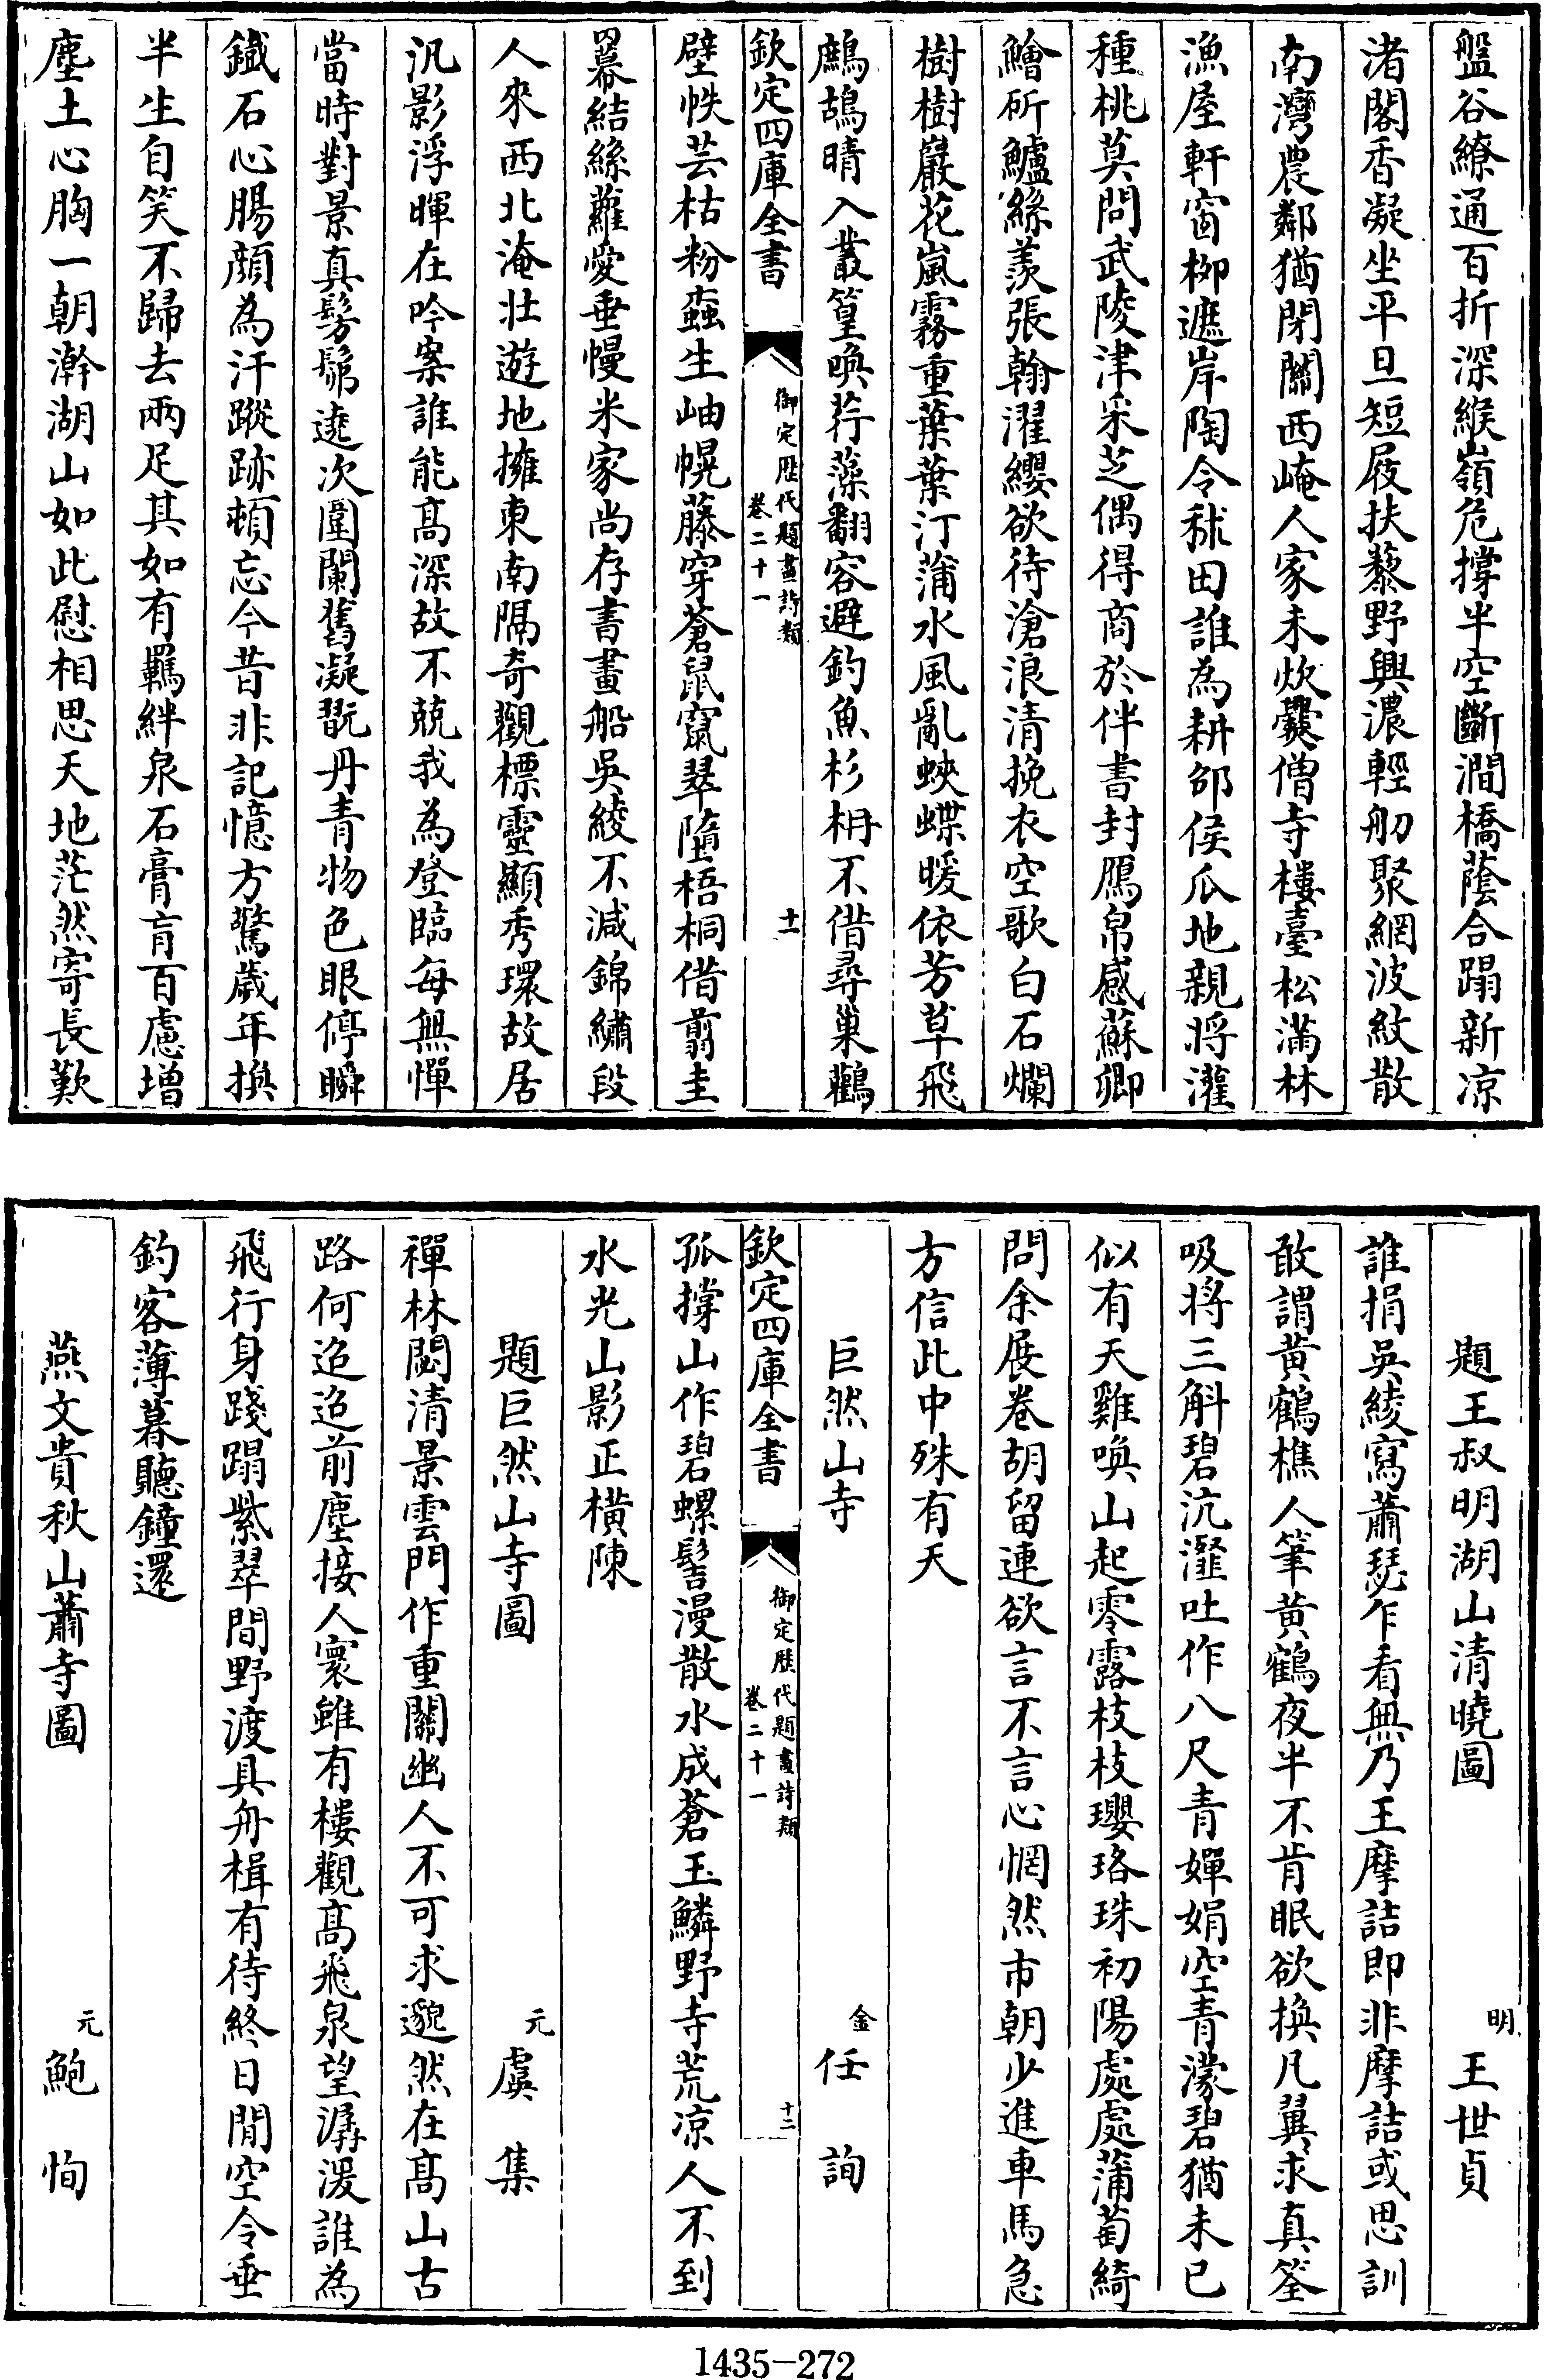 盤谷繚通百折深緱嶺危撐半空斷澗橋蔭合蹋新凉
渚閣香凝坐平旦短屐扶藜野興濃輕舠聚網波紋散
南灣農鄰猶閉關西崦人家未炊爨僧寺樓臺松滿林
漁屋軒窗柳遮岸陶令秫田誰為耕邵侯瓜地親將灌
種桃莫問武陵津采芝偶得商於伴書封鴈帛感蘇卿
鱠斫鱸絲羨張翰濯纓欲待滄浪清挽衣空歌白石爛
樹樹巖花嵐霧重葉葉汀蒲水風亂蛺蝶暖依芳草飛
鷓鴣晴入叢篁喚荇藻翻容避釣魚杉枏不借尋巢鸛
欽定四庫全書
御定歴代題畫詩類
卷二十一
十一
壁帙芸枯粉蝨生岫幌藤穿蒼鼠竄翠墮梧桐借翦圭
羃結絲蘿愛垂幔米家尚存書畫船吳綾不減錦繡段
人來西北淹壯遊地擁東南隔奇觀標靈顯秀環故居
汎影浮暉在吟案誰能高深故不兢我為登臨每無憚
當時對景真髣髴遶次圍闌舊凝翫丹青物色眼停瞬
鐵石心腸顔為汗蹤跡頓忘今昔非記憶方驚歲年換
半生自笑不歸去兩足其如有羈絆泉石膏肓百慮增
塵土心胸一朝澣湖山如此慰相思天地茫然寄長歎
題王叔明湖山清曉圖 明 王世貞
誰捐吳綾寫蕭瑟乍看無乃王摩詰即非摩詰或思訓
敢謂黃鶴樵人筆黃鶴夜半不肯眠欲換凡翼求真筌
吸將三斛碧沆瀣吐作八尺青嬋娟空青濛碧猶未已
似有天雞喚山起零露枝枝瓔珞珠初陽處處蒲萄綺
問余展卷胡留連欲言不言心惘然市朝少進車馬急
方信此中殊有天
巨然山寺 金 任詢
欽定四庫全書
御定歴代題畫詩類
卷二十一
十二
孤撐山作碧螺髻漫散水成蒼玉鱗野寺荒凉人不到
水光山影正橫陳
題巨然山寺圖 元 虞集
禪林閟清景雲門作重關幽人不可求邈然在高山古
路何迢迢前塵接人寰雖有樓觀高飛泉望潺湲誰為
飛行身踐蹋紫翠間野渡具舟楫有待終日閒空令垂
釣客薄暮聽鐘還
燕文貴秋山蕭寺圖 元 鮑恂
1435-272